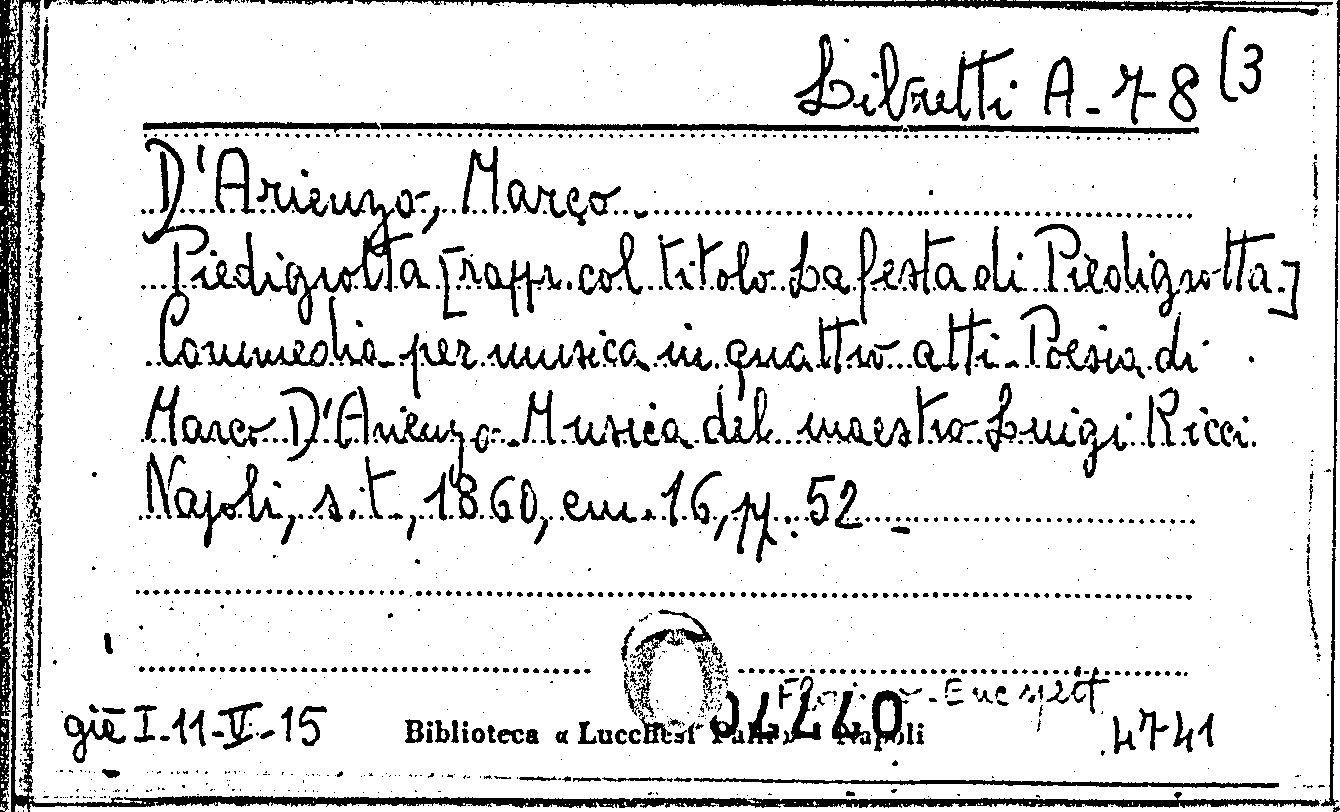 Libretti A-78 (3
D'Arienzo, Marco.
Piedigrotta [rappr. col titolo La festa di Piedigrotta.]
Commedia per musica in quattro atti. Poesia di
Marco D'Arienzo. Musica del maestro Luigi Ricci.
Napoli, s.t., 1860, cm. 16, pp. 52 -
già I-11-V-15
Biblioteca « Lucchesi Palli » Napoli
4741